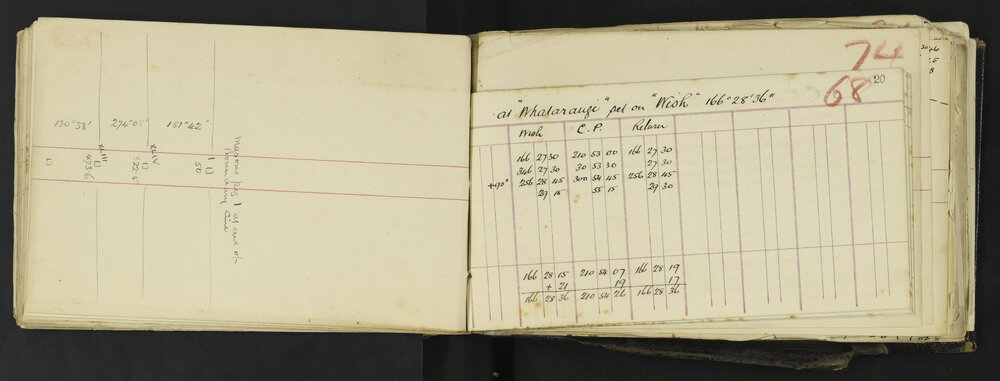 130°33' 274°05' 157°42'
XLIII XLIV
473.6 322.5 50 1
Masons Peg 1 at end of
Boundary Line
74
68
20
at "Whatarangi" set on "Wish" 166°28'36"
Wish C.P. Return
166 27 30 210 53 00 166 27 30
346 27 30 30 53 30 27 30
+90° 256 28 45 300 54 45 256 28 45
29 15 55 15 29 30
166 28 15 210 54 07 166 28 19
+ 21 19 17
166 28 36 210 54 26 166 28 36